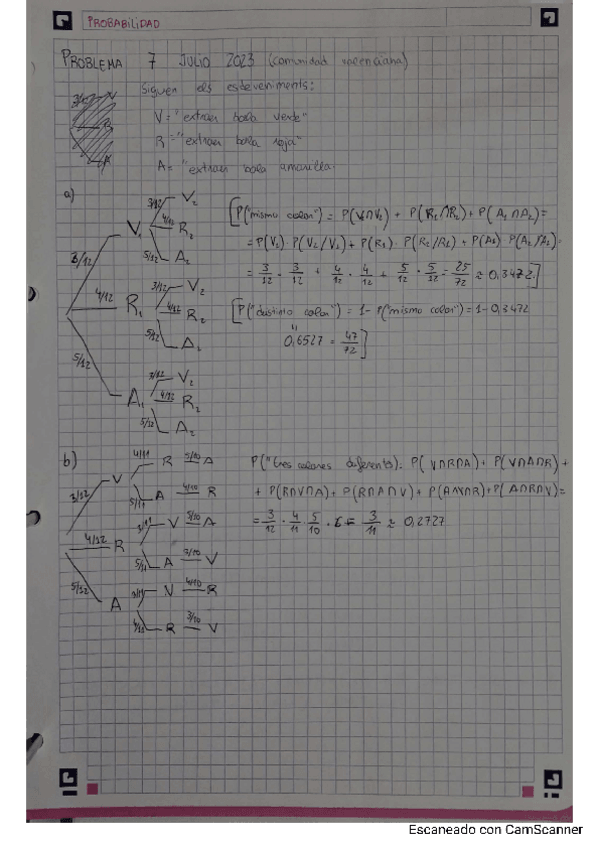 PROBABILIDAD
PROBLEMA 7 JULIO 2023 (comunidad valenciana)
Siguen els esdeveniments:
V = "extraer bola verde"
R = "extraer bola roja"
A = "extraer bola amarilla
a)
3/12 V₁ 3/12 V₂
4/12 R₂
5/12 A₂
4/12 R₁ 3/12 V₂
4/12 R₂
5/12 A₂
5/12 A₁ 3/12 V₂
4/12 R₂
5/12 A₂
[P("mismo color") = P(V₁∩V₂) + P(R₁∩R₂) + P(A₁∩A₂) =
= P(V₁) · P(V₂/V₁) + P(R₁) · P(R₂/R₁) + P(A₁) · P(A₂/A₁) =
= 3/12 · 3/12 + 4/12 · 4/12 + 5/12 · 5/12 = 25/72 ≈ 0,3472]
[P("distinto color") = 1 - P("mismo color") = 1 - 0,3472
"
0,6527 = 47/72]
b)
3/12 V 4/11 R 5/10 A
5/11 A 4/10 R
4/12 R 3/11 V 5/10 A
5/11 A 3/10 V
5/12 A 3/11 V 4/10 R
4/11 R 3/10 V
P("tres colores diferents): P(V∩R∩A) + P(V∩A∩R) +
+ P(R∩V∩A) + P(R∩A∩V) + P(A∩V∩R) + P(A∩R∩V) =
= 3/12 · 4/11 · 5/10 · 6 = 3/11 ≈ 0,2727
Escaneado con CamScanner